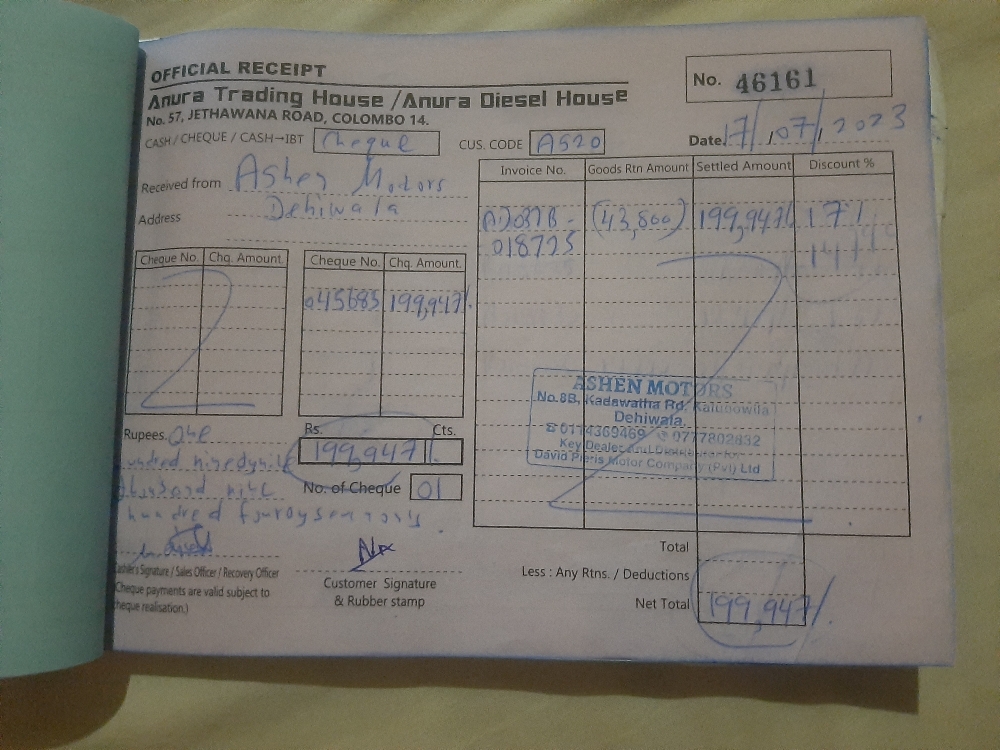 OFFICIAL RECEIPT
No. 46161
Anura Trading House /Anura Diesel House
No. 57, JETHAWANA ROAD, COLOMBO 14.
CASH / CHEQUE / CASH→IBT Cheque CUS. CODE AS20 Date. 17/07/2023
Received from Ashen Motors
Address Dehiwala
Invoice No. Goods Rtn Amount Settled Amount Discount %
(43,800) 199,947/ 17%
018725
Cheque No. Chq. Amount. Cheque No. Chq. Amount.
045685 199,947/.
ASHEN MOTORS
No.8B, Kadawatha Rd, Kalubowila
Dehiwala.
0114369469 0777802832
Key Dealer And Distributor for
David Pieris Motor Company (Pvt) Ltd
Rupees. One
hundred
hundred
Rs. Cts.
199,947/.
No. of Cheque 01
Cashier's Signature / Sales Officer / Recovery Officer
(Cheque payments are valid subject to
cheque realisation.)
Customer Signature
& Rubber stamp
Total
Less : Any Rtns. / Deductions
Net Total 199,947/.